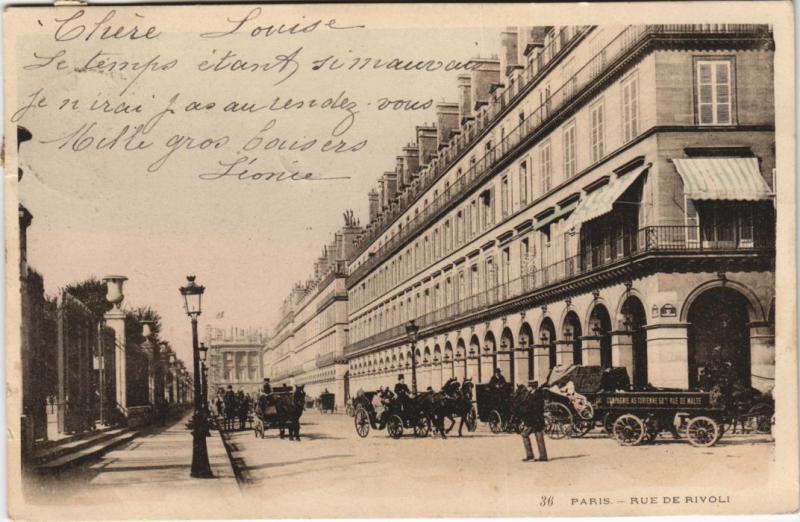 Chère Louise
Le temps étant si mauvai
Je n'irai pas au rendez-vous
Mille gros baisers
Léonie
COMPAGNIE
RUE DE MALTE
36 PARIS. - RUE DE RIVOLI